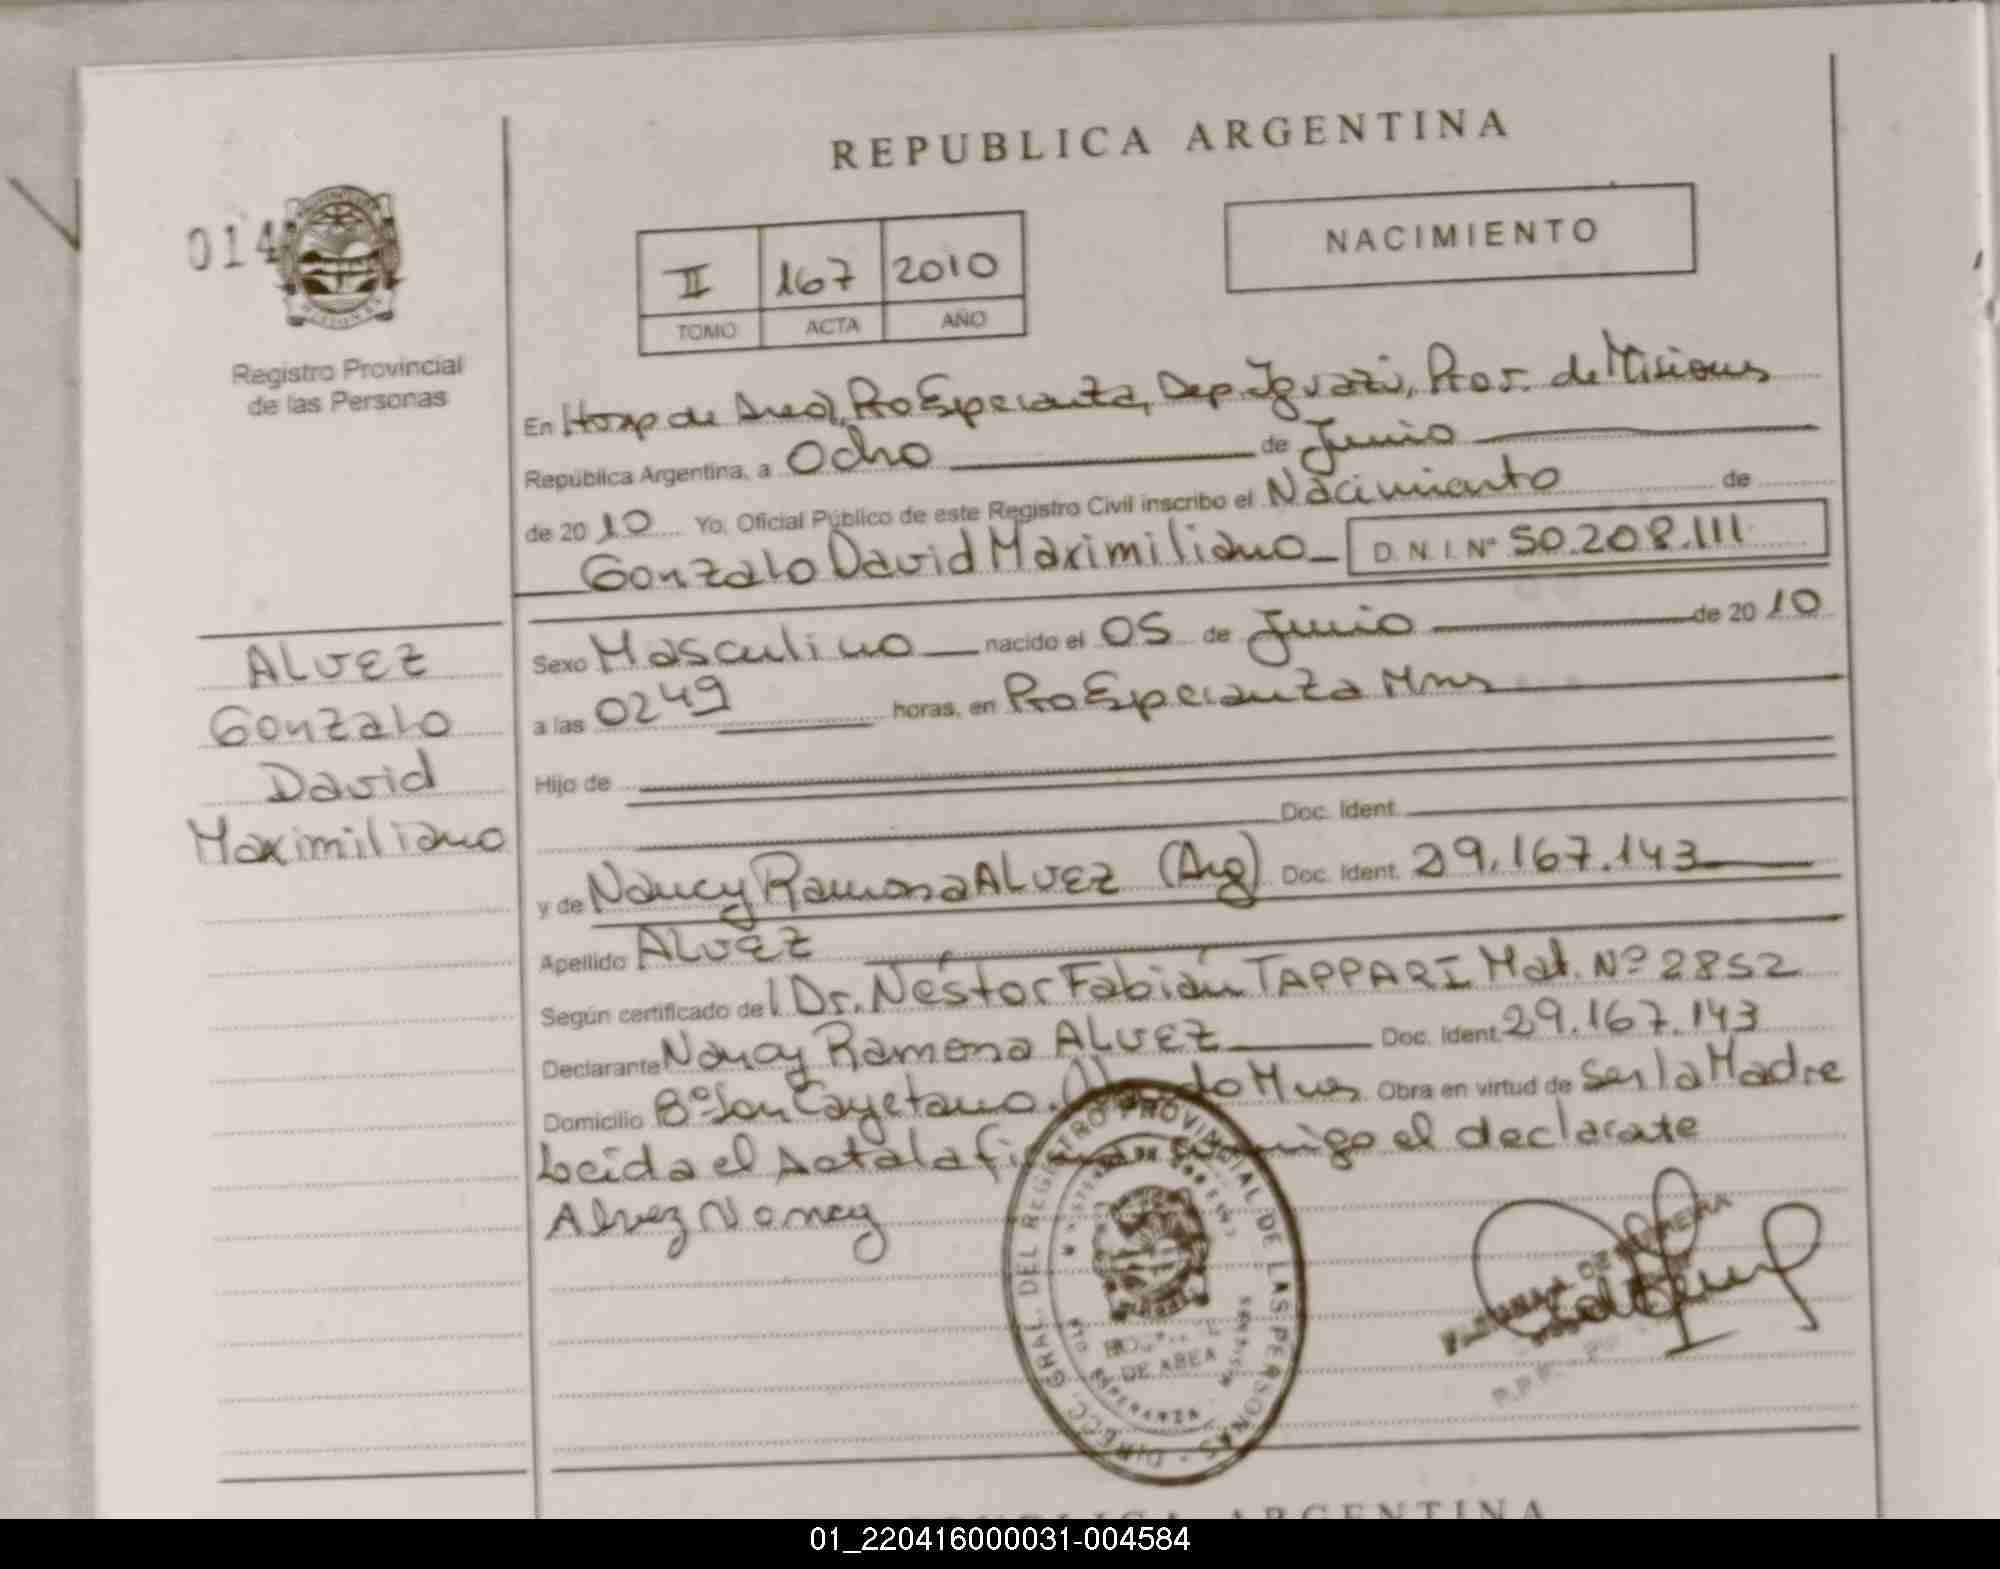 REPUBLICA ARGENTINA
014
NACIMIENTO
II 167 2010
TOMO ACTA AÑO
Registro Provincial
de las Personas
En Hosp de Area, Pto Esperanza, Dep. Iguazú, Prov. de Misiones
República Argentina, a Ocho de Junio
de 2010 Yo, Oficial Público de este Registro Civil inscribo el Nacimiento de
Gonzalo David Maximiliano D.N.I. Nº 50.208.111
ALVEZ
Gonzalo
David
Maximiliano
Sexo Masculino nacido el 05 de Junio de 2010
a las 0249 horas, en Pto Esperanza Mnes
Hijo de
Doc. Ident.
y de Nancy Ramona ALVEZ (Arg) Doc. Ident. 29.167.143
Apellido ALVEZ
Según certificado del Dr. Néstor Fabián TAPPARI Mat. Nº 2852
Declarante Nancy Ramona ALVEZ Doc. Ident. 29.167.143
Domicilio Bº San Cayetano. Mnes Obra en virtud de Ser la Madre
Leida el Acta la conmigo el declarate
Alvez Nancy
DIRECC. GRAL. DEL REGISTRO PROVINCIAL DE LAS PERSONAS
DE AREA
ESPERANZA
REPUBLICA ARGENTINA
01_220416000031-004584